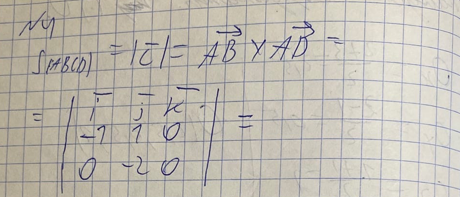 №4
S(ABCD) = |c̅| = A͞B⃗ × A͞D⃗ =
= | i̅ j̅ k̅ |
| -1 1 0 | =
| 0 -2 0 |